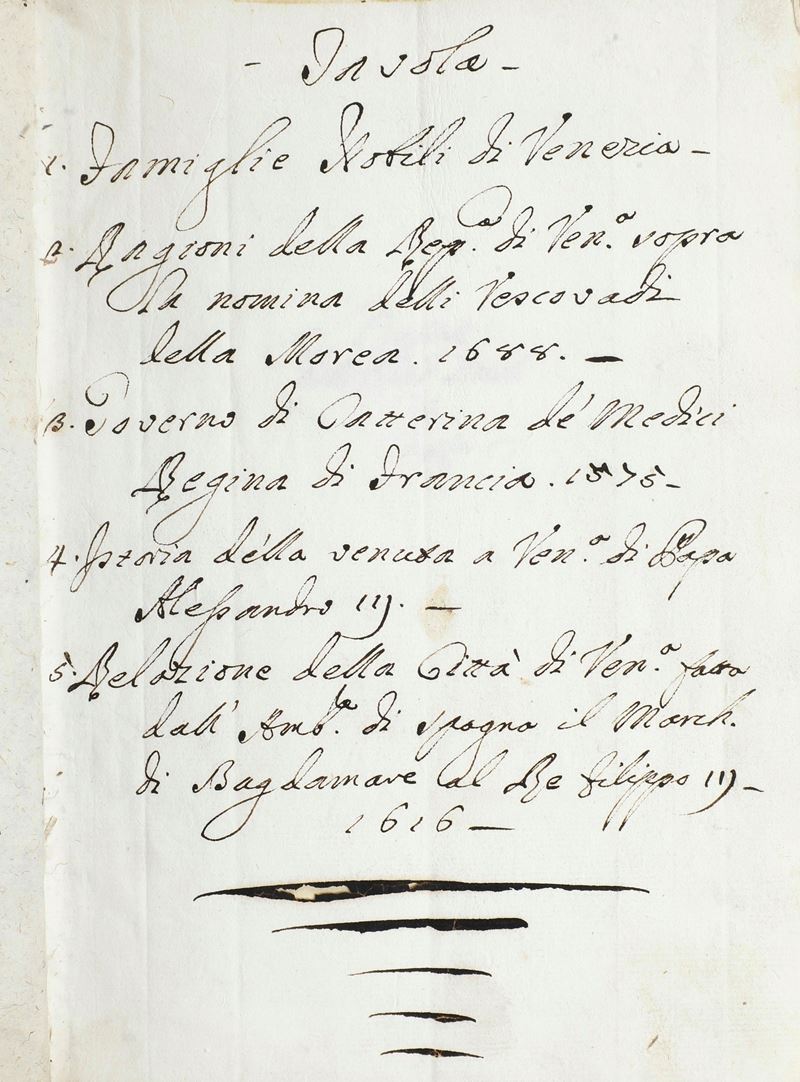 - Tavola -
1. Famiglie Nobili di Venezia -
2. Ragioni della Rep.ca di Ven.a sopra
la nomina delli Vescovadi
della Morea. 1688. -
3. Governo di Catterina de' Medici
Regina di Francia. 1575 -
4. Istoria della venuta a Ven.a di Papa
Alessandro III. -
5. Relazione della Città di Ven.a fatta
dall' Amb.re di Spagna il March.
di Bagdamare al Re Filippo III -
1616 -